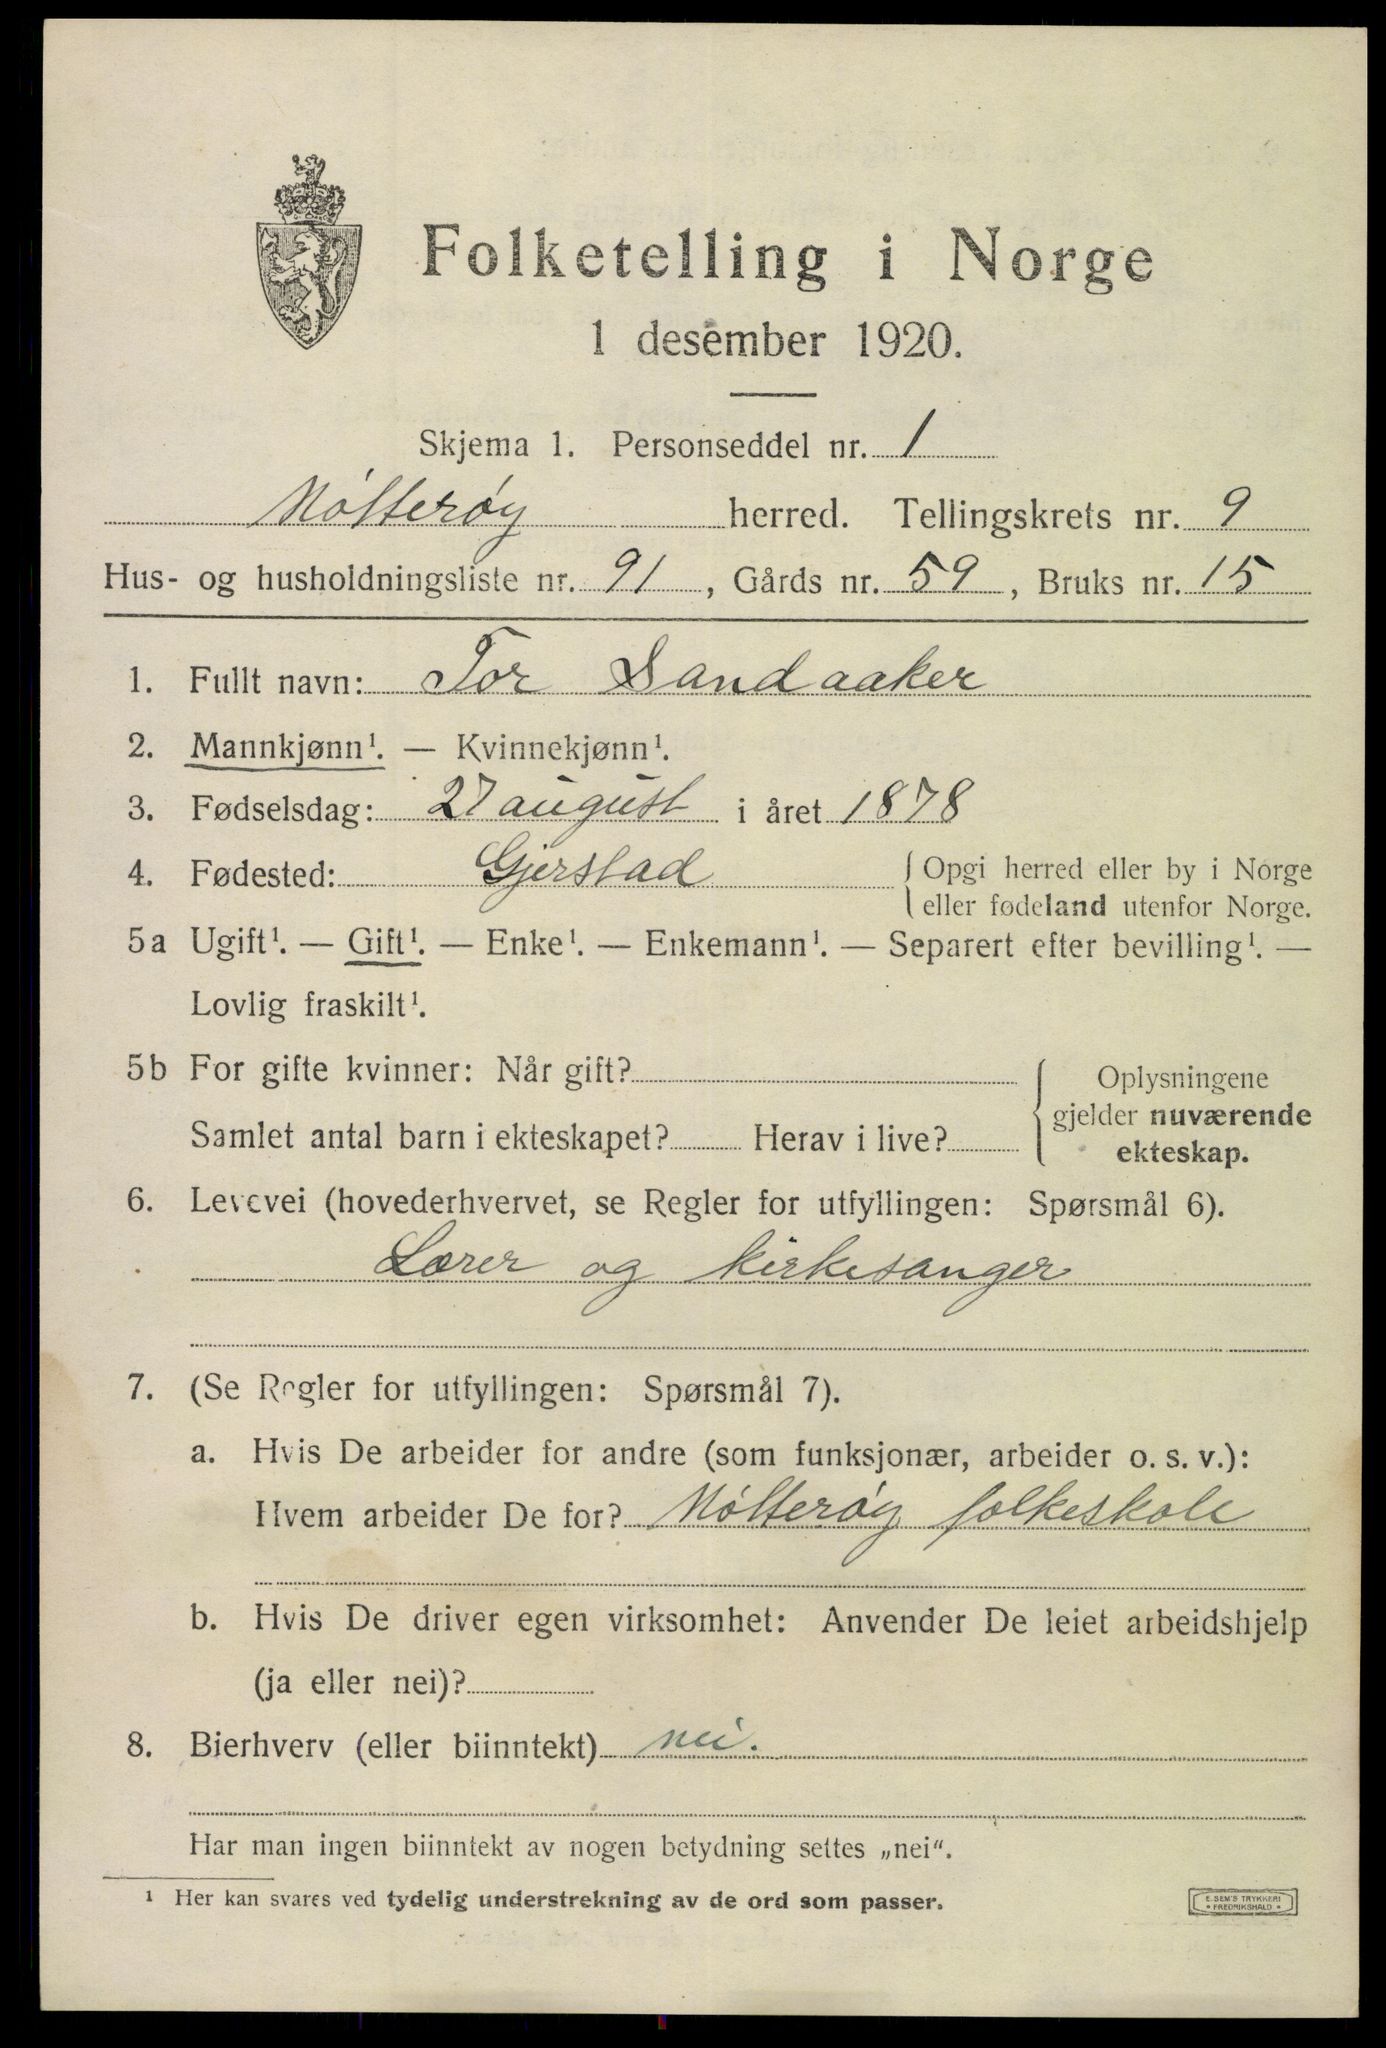 Folketelling i Norge
1 desember 1920.
Skjema 1. Personseddel nr. 1
Nøtterøy herred. Tellingskrets nr. 9
Hus- og husholdningsliste nr. 91, Gårds nr. 59, Bruks nr. 15
1. Fullt navn: Tor Sandaaker
2. Mannkjønn¹. — Kvinnekjønn¹.
3. Fødselsdag: 27 august i året 1878
4. Fødested: Gjerstad { Opgi herred eller by i Norge
eller fødeland utenfor Norge.
5a Ugift¹. — Gift¹. — Enke¹. — Enkemann¹. — Separert efter bevilling¹. —
Lovlig fraskilt¹.
5b For gifte kvinner: Når gift?
Samlet antal barn i ekteskapet? Herav i live?
{ Oplysningene
gjelder nuværende
ekteskap.
6. Levevei (hovederhvervet, se Regler for utfyllingen: Spørsmål 6).
Lærer og kirkesanger
7. (Se Regler for utfyllingen: Spørsmål 7).
a. Hvis De arbeider for andre (som funksjonær, arbeider o. s. v.):
Hvem arbeider De for? Nøtterøy folkeskole
b. Hvis De driver egen virksomhet: Anvender De leiet arbeidshjelp
(ja eller nei)?
8. Bierhverv (eller biinntekt) nei.
Har man ingen biinntekt av nogen betydning settes „nei“.
¹ Her kan svares ved tydelig understrekning av de ord som passer.
E. SEM'S TRYKKERI
• FREDRIKSHALD •